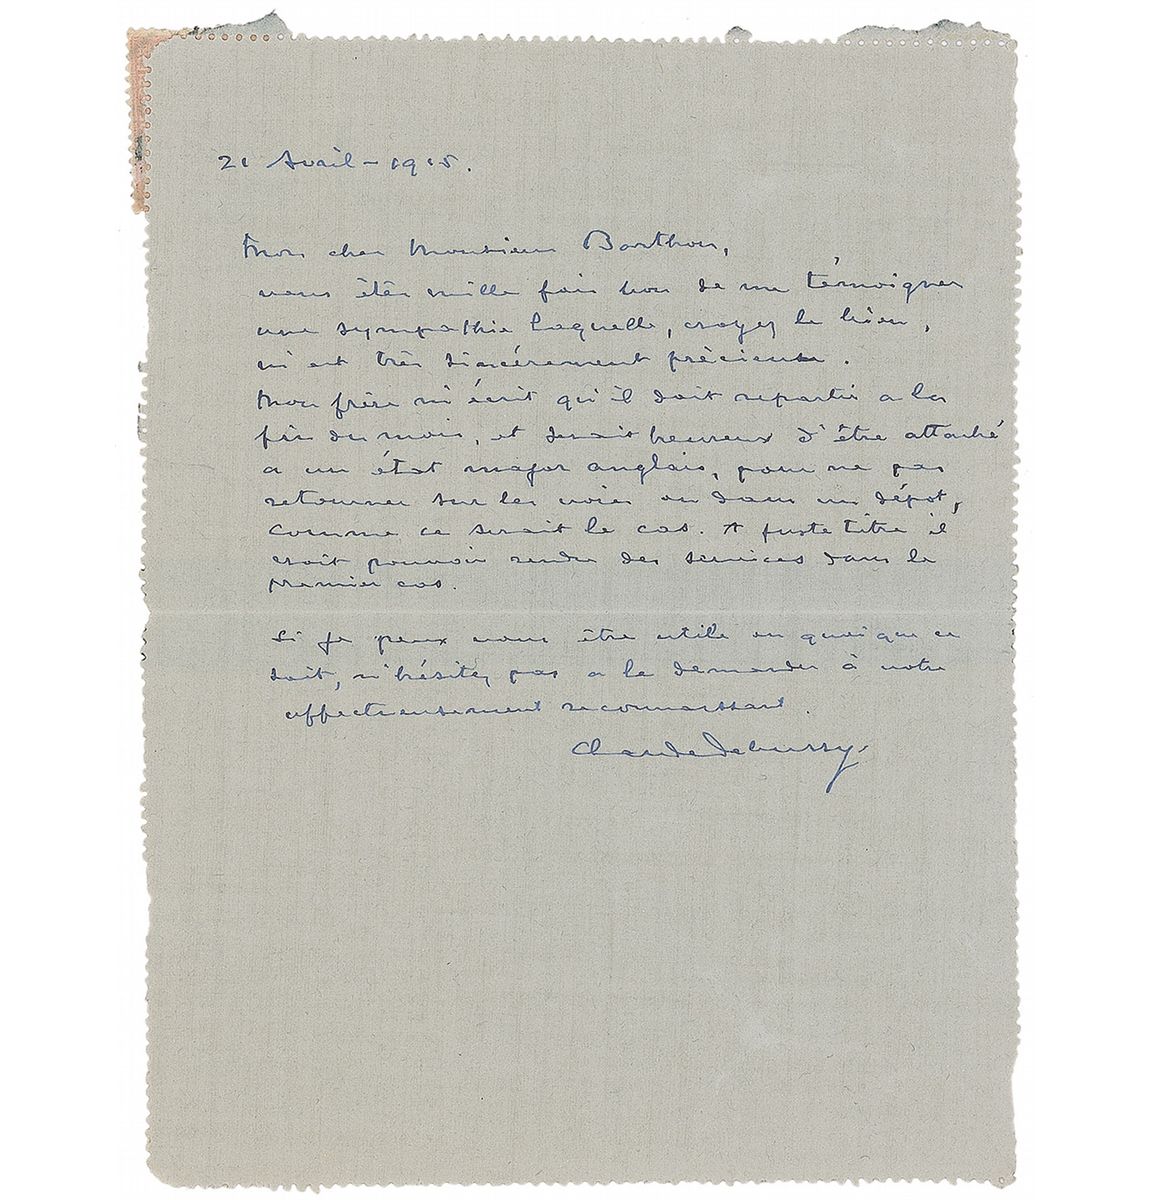 21 Avril - 1915.
Mon cher Monsieur Barthou,
vous êtes mille fois bon de me témoigner
une sympathie laquelle, croyez le bien,
m'est très sincèrement précieuse.
Mon frère m'écrit qu'il doit repartir a la
fin du mois, et serait heureux d'être attaché
a un état major anglais, pour ne pas
retourner sur les voies ou dans un dépôt,
comme ce serait le cas. A juste titre il
croit pouvoir rendre des services dans le
premier cas.
Si je peux vous être utile en quoique ce
soit, n'hésitez pas a le demander à votre
affectueusement reconnaissant.
Claude Debussy